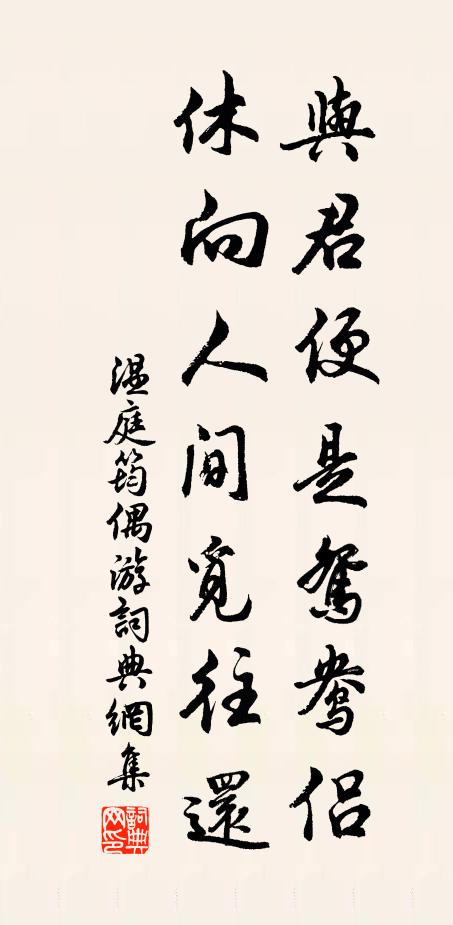 與君便是鴛鴦侶
休向人間覓往還
溫庭筠偶游詞典網集
詞典
网印